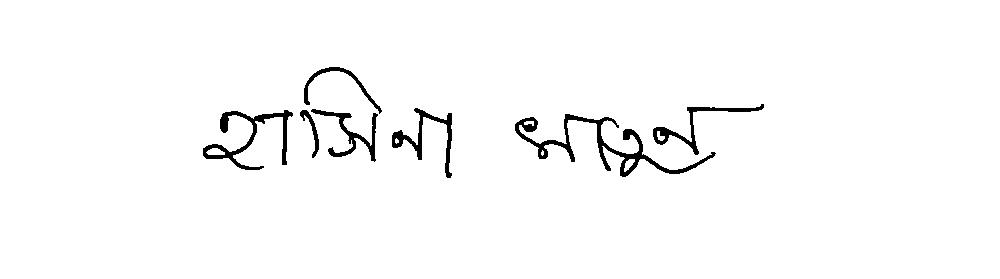 হাসিনা খাতুন